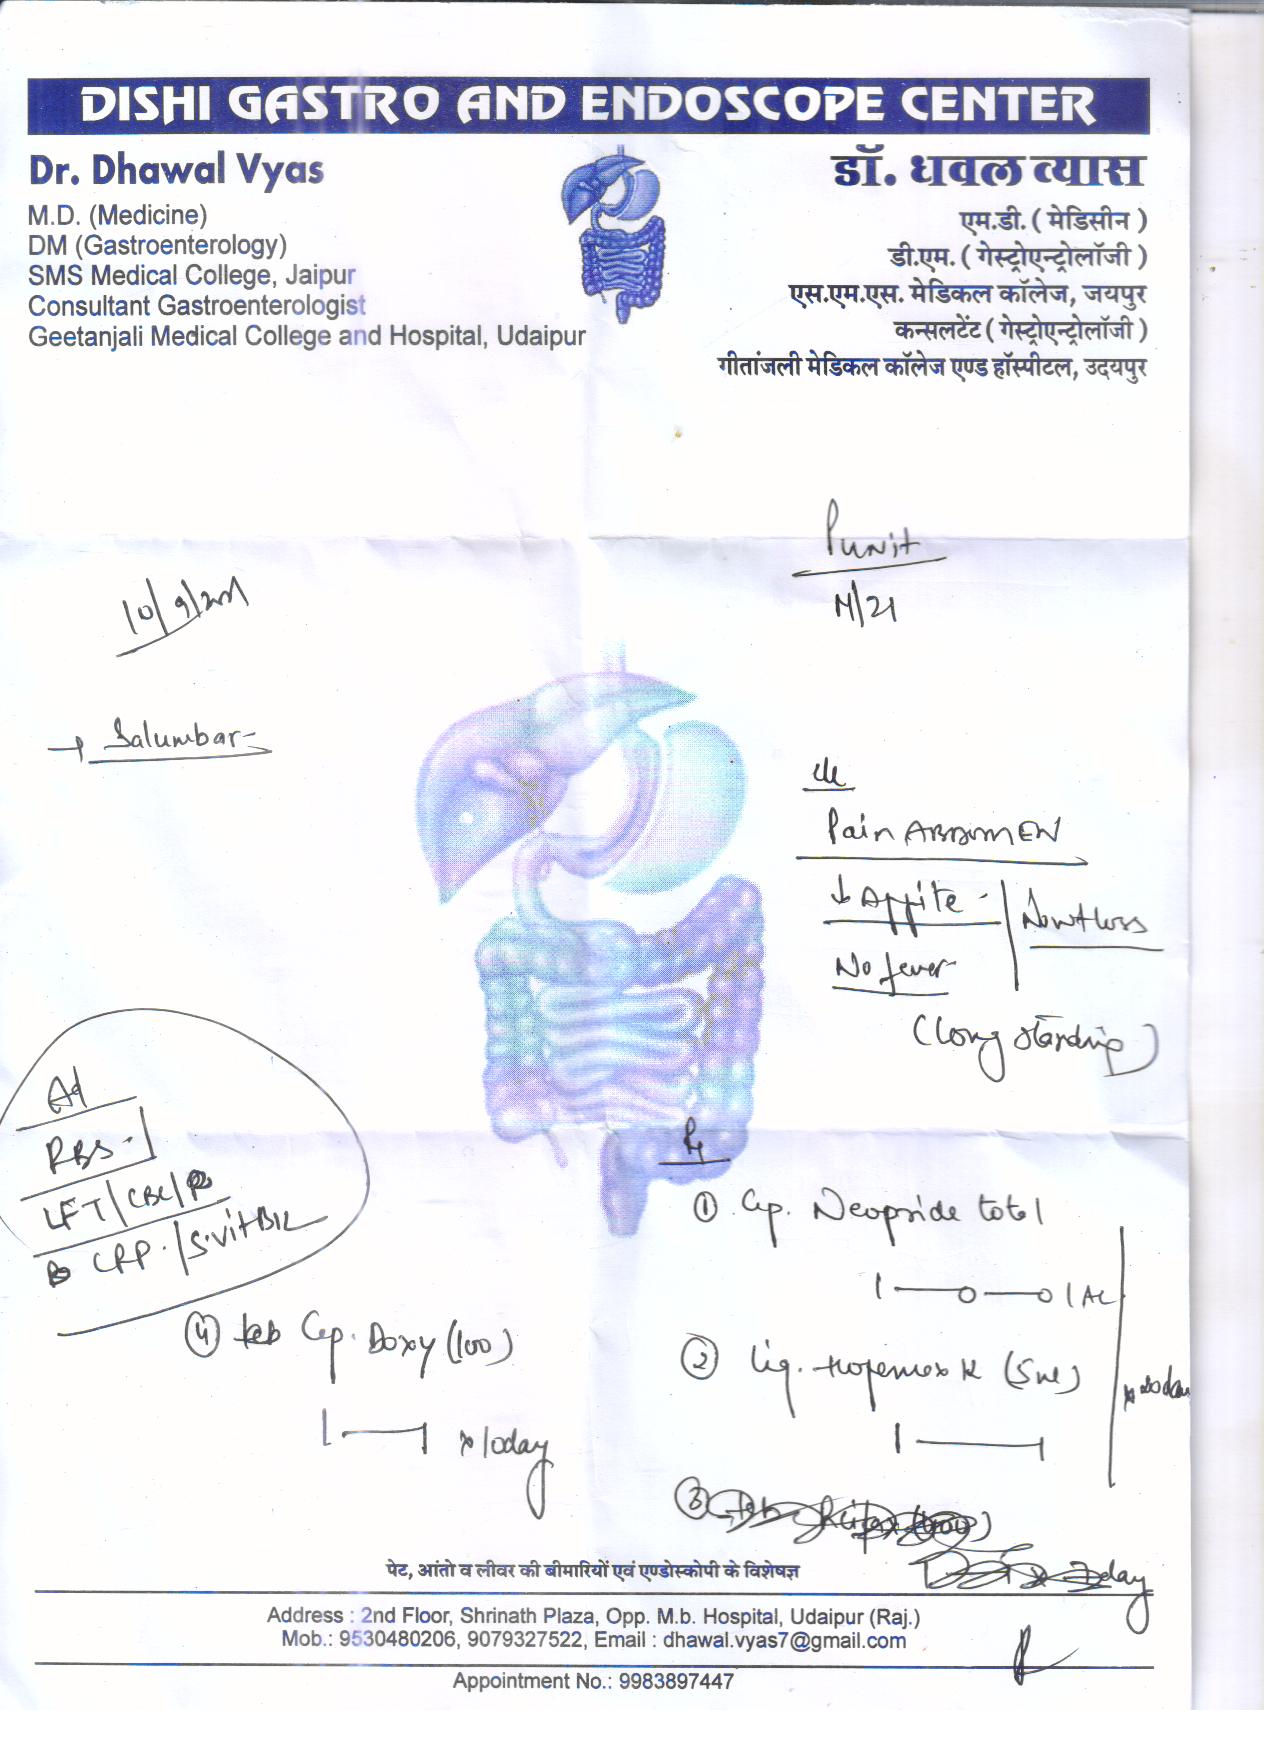 DISHI GASTRO AND ENDOSCOPE CENTER
Dr. Dhawal Vyas
M.D. (Medicine)
DM (Gastroenterology)
SMS Medical College, Jaipur
Consultant Gastroenterologist
Geetanjali Medical College and Hospital, Udaipur
डॉ. धवल व्यास
एम.डी. ( मेडिसीन )
डी.एम. ( गेस्ट्रोएन्ट्रोलॉजी )
एस.एम.एस. मेडिकल कॉलेज, जयपुर
कन्सलटेंट ( गेस्ट्रोएन्ट्रोलॉजी )
गीतांजली मेडिकल कॉलेज एण्ड हॉस्पीटल, उदयपुर
Punit
M/21
10/9/
→ Salumbar
c/c
Pain ABDOMEN
↓ Appite
No wt loss
No fever
(long standing)
Ad
RBS
LFT/CBC/
CRP./S.vitB12
Rx
① Cap. Neopride total
1—0—0 1 AC
② Liq. (5ml)
1—1
③
④ Cap. Doxy (100)
1—1 x 10day
पेट, आंतो व लीवर की बीमारियों एवं एण्डोस्कोपी के विशेषज्ञ
Address : 2nd Floor, Shrinath Plaza, Opp. M.b. Hospital, Udaipur (Raj.)
Mob.: 9530480206, 9079327522, Email : dhawal.vyas7@gmail.com
Appointment No.: 9983897447